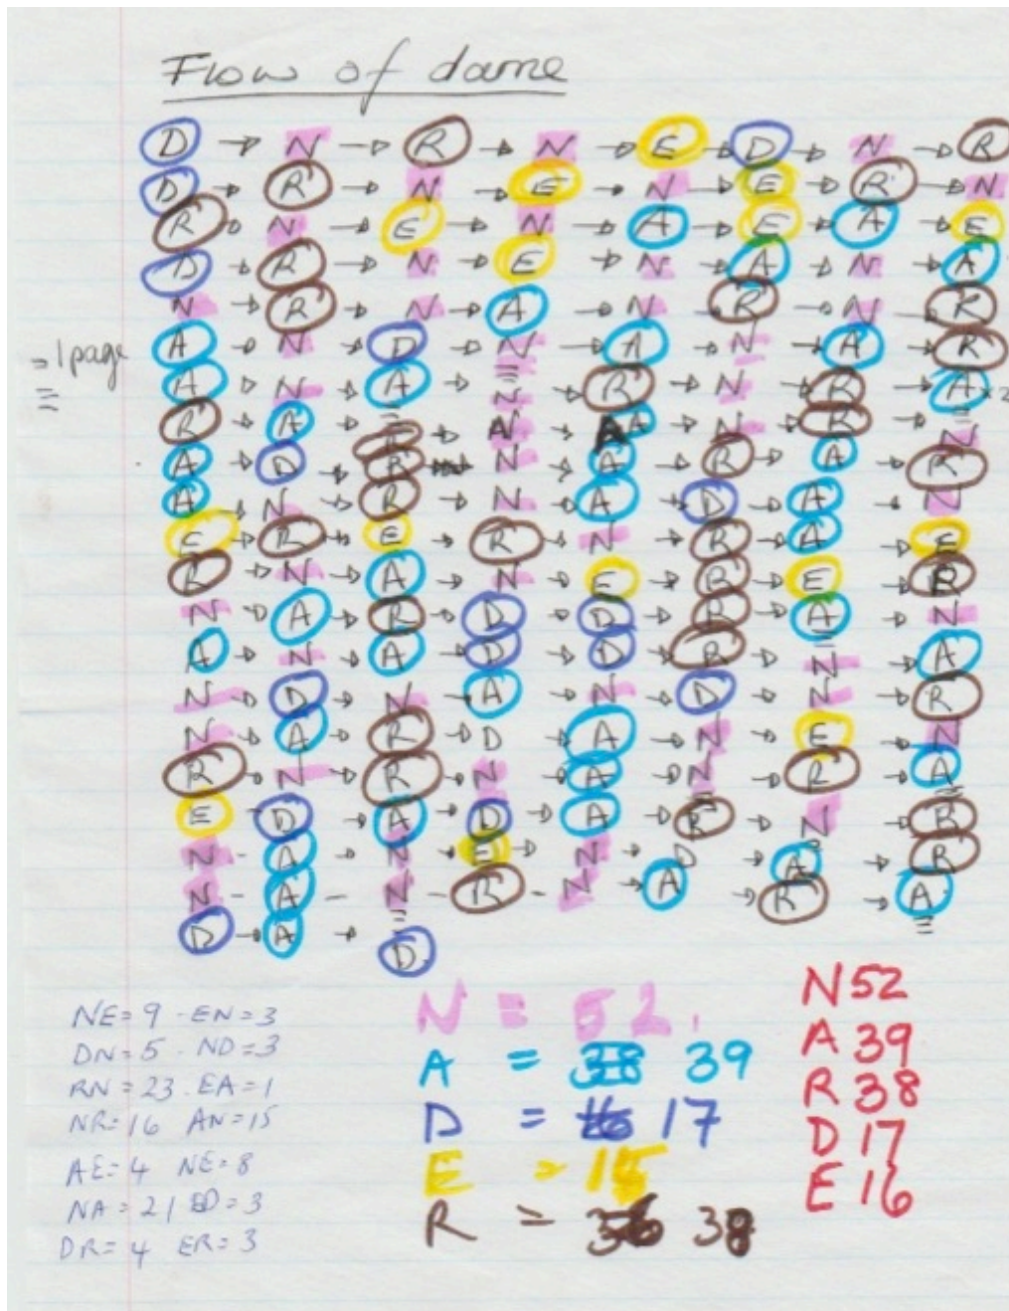 Flow of dame
D → N → R → N → E → D → N → R
D → R → N → E → N → E → R → N
R → N → E → N → A → E → A → E
D → R → N → E → N → A → N → A
N → R → N → A → N → R → N → R
A → N → D → N → A → N → A → R
= 1 page
A → N → A → N → R → N → R → A x 2
R → A → R → N → A A → N → R → N
A → D → R → N → A → R → A → R
A → N → R → N → A → D → A → N
E → R → E → R → N → R → A → E
R → N → A → N → E → R → E → R
N → A → R → D → D → R → A → N
A → N → A → D → D → R → N → A
N → D → N → A → N → D → N → R
N → A → R → D → A → N → E → N
R → N → R → N → A → N → R → A
E → D → A → D → A → R → N → R
N - A → N → E → N → D → A → R
N - A - N - R - N → A → R → A
D → A → D
NE = 9 - EN = 3
DN = 5 - ND = 3
RN = 23 . EA = 1
NR = 16 AN = 15
AE = 4 NE = 8
NA = 21 ED = 3
DR = 4 ER = 3
N = 52
A = 38 39
D = 16 17
E = 15
R = 36 38
N 52
A 39
R 38
D 17
E 16